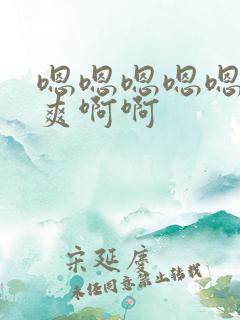 嗯嗯嗯嗯嗯
爽啊啊
宋延庹
未经同意禁止转载